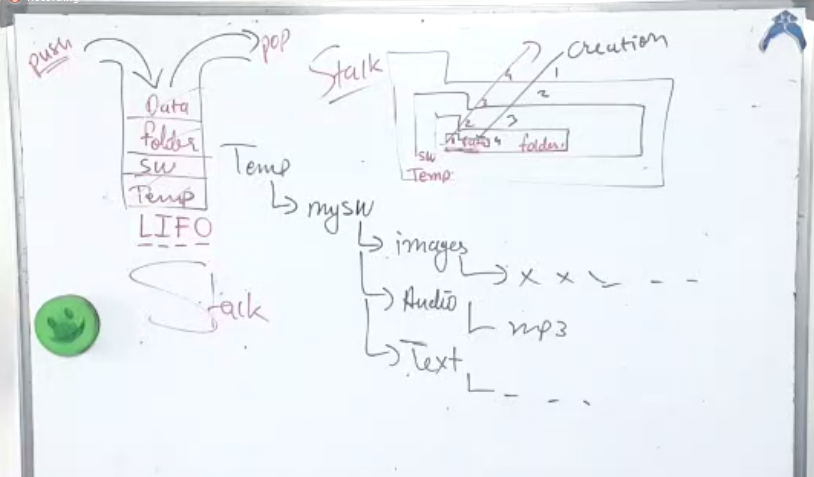 push
pop
Data
folder
SW
Temp
LIFO
Stack
Stack
creation
4 1
3 2
2 3
4 folder
SW
Temp
Temp
mysw
images
x x
Audio
mp3
Text